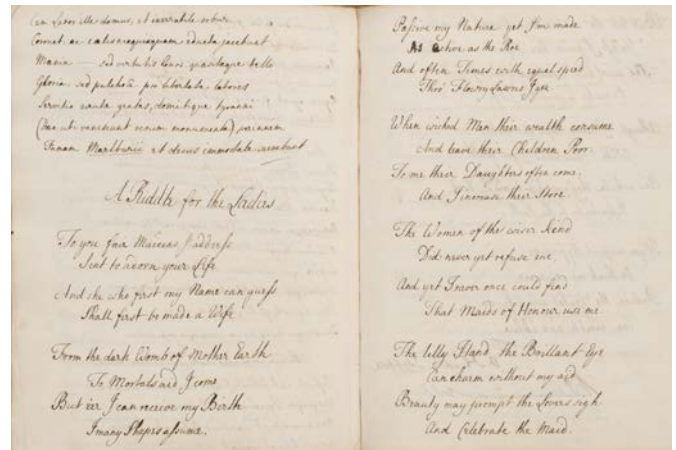 Cornet ac
Mania sed virtutis
Gloria sed pulchra pro libertate labores
Servitio grates, domitique tyranni
monumenta)
Famam Marlburio et decus immortale
A Riddle for the Ladies
To you fair Maidens I address
Sent to adorn your Life
And she who first my Name can guess
Shall first be made a Wife
From the dark Womb of Mother Earth
To Mortals aid I come
But e'er I can receive my Birth
I many Shapes assume.
Passive my Nature yet I'm made
As active as the Roe
And often Times with equal speed
Thro' Flowry Lawns I go
When wicked Men their wealth consume
And leave their Children Poor
To me their Daughters often come
And I increase their Store
The Women of the wiser kind
Did never yet refuse me
And yet I never once could find
That Maids of Honour use me
The lilly Hand the Brillant Eye
Can charm without my aid
Beauty may prompt the Lovers sigh
And Celebrate the Maid.